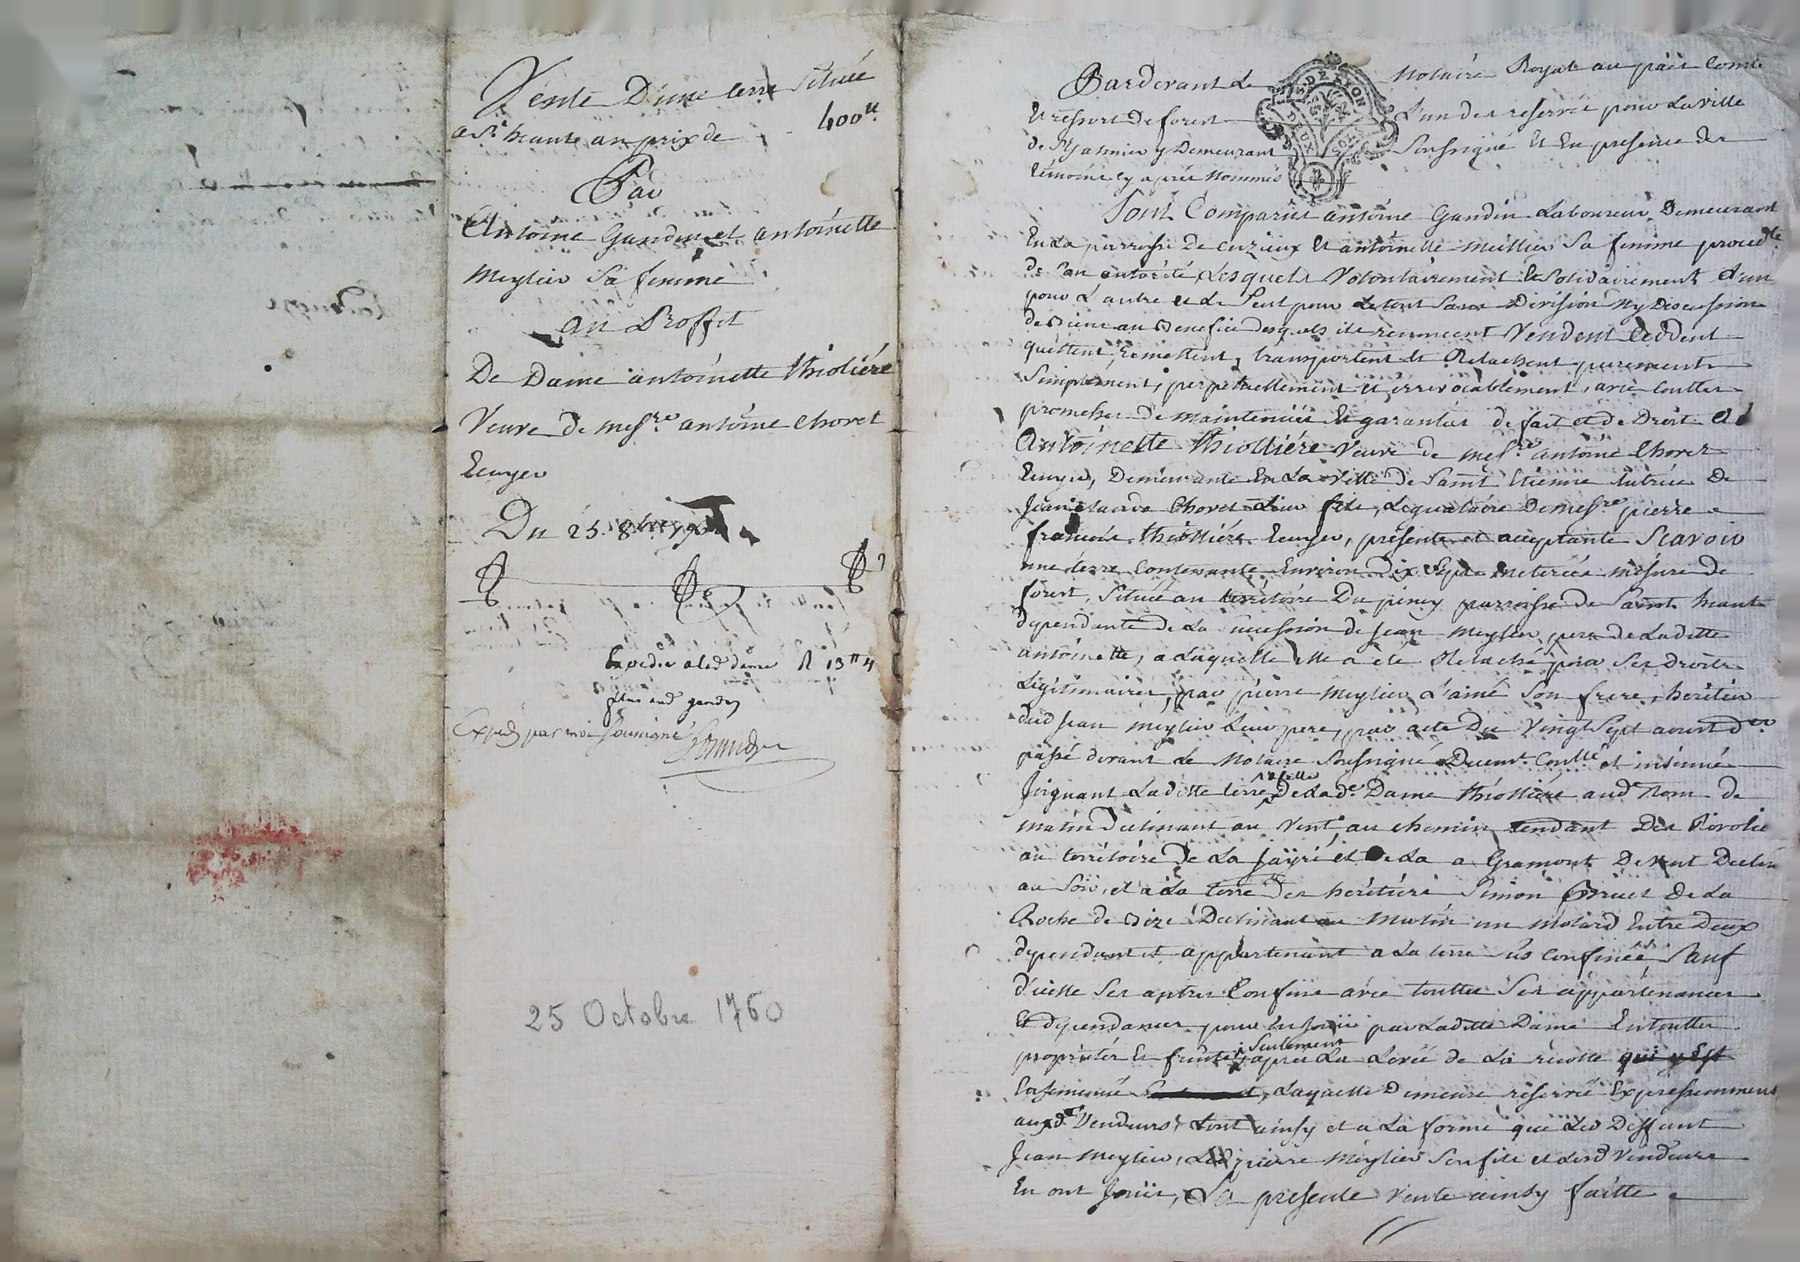 Vente D'une terre située
a St. heant au prix de 400tt
Par
Antoine Gandin et antoinette
Meylier Sa femme
au Proffit
De Dame antoinette thiolière
Veuve de messre antoine Chovet
Ecuyer
Du 25. 8bre 1760
Expedié a lad dame
Expé par moi soussigné
25 Octobre 1760
Pardevant Le Notaire Royal au païs Comté
Et ressort de forest L'un des reservés pour La ville
de St Galmier y Demeurant Soussigné Et En presence des
témoins cy après Nommés
Sont Comparus antoine Gandin Laboureur Demeurant
En La parroisse De Cuzieux Et antoinette Meillier Sa femme
de son autorité Lesquels Volontairement Et Solidairement L'un
pour L'autre et Le Seul pour Le tout Sans Division Ny Discussion
de Biens au Benefice desquels ils renoncent Vendent Ceddent
quittent, remettent, transportent Et Relachent purement
Simplement, perpetuellement et irrevocablement, avec touttes
promesses de maintenir Et garantir de fait et de Droit A
Antoinette thiollière Veuve de messre antoine Chovet
Ecuyer, Demeurante En La Ville de Saint Etienne tutrice De
Jean Claude Chovet Leur fils, Legataire De messre pierre
francois thiollière Ecuyer, presente et acceptante Scavoir
une terre Contenante Environ Dix Sept meterées mesure de
forest, Située au territoire Du piney parroisse de Saint heant
dependante de La Succession de Jean Meylier, pere de Laditte
antoinette, a Laquelle elle a eté Relaché pour Ses Droits
Legitimaires, par pierre Meylier L'ainé Son frere, heritier
dud Jean Meylier Leur pere, par acte Du Vingt Sept aoust der
passé devant Le Notaire Soussigné Duemt Conllé et insinué
Joignant Laditte terre De Lade Dame thiollière aud Nom de
matin Declinant au Vent, au chemin tendant Des Rivolie
au territoire de La et De La a Gramont De Vent
au Soir, et a La terre Des heritiers Simon De La
Roche de Bize Declinant au Matin un molard Entre Deux
dependant et appartenant a La terre sus Confinée Sauf
d'icelle Ses autres Confins avec touttes Ses appartenances
Et dependances pour En Jouir par Laditte Dame En touttes
proprietés Et fruits seulement apres La Levée de La recolte qui y Est
Ensemencé, Laquelle Demeure reservée Expressemment
auxd Vendeurs, tout ainsy et a La forme que Led Deffunt
Jean Meylier, Led pierre Meylier Son fils et Lesd Vendeurs
En ont Jouis, La presente Vente ainsy faitte